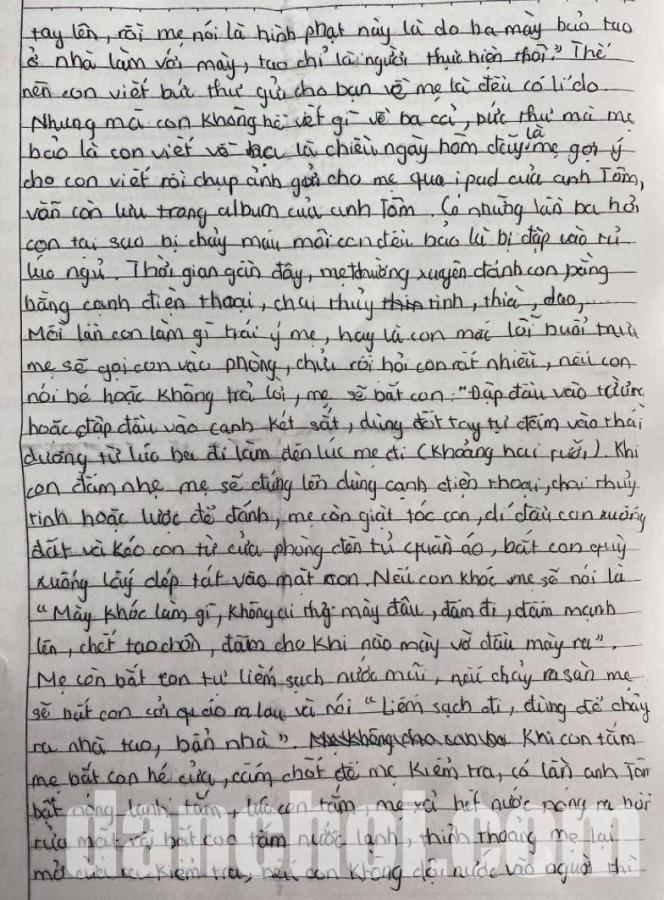 tay lên, rồi mẹ nói là hình phạt này là do ba mày bảo tao
ở nhà làm với mày, tao chỉ là người thực hiện thôi." Thế
nên con viết bức thư gửi cho bạn về mẹ là đều có lí do.
Nhưng mà con không hề viết gì về ba cả, bức thư mà mẹ
bảo là con viết về ba là chiều ngày hôm đấy là mẹ gợi ý
cho con viết rồi chụp ảnh gửi cho mẹ qua ipad của anh Tôm,
vẫn còn lưu trong album của anh Tôm. Có những lần ba hỏi
con tại sao bị chảy máu môi con đều bảo là bị đập vào tủ
lúc ngủ. Thời gian gần đây, mẹ thường xuyên đánh con bằng
bằng cạnh điện thoại, chai thủy tinh, thìa, dao,
Mỗi lần con làm gì trái ý mẹ, hay là con mắc lỗi buổi trưa
mẹ sẽ gọi con vào phòng, chửi rồi hỏi con rất nhiều, nếu con
nói bé hoặc không trả lời, mẹ sẽ bắt con: "Đập đầu vào tường
hoặc đập đầu vào cạnh két sắt, dùng đốt tay tự đấm vào thái
dương từ lúc ba đi làm đến lúc mẹ đi (khoảng hai rưỡi). Khi
con đấm nhẹ mẹ sẽ đứng lên dùng cạnh điện thoại, chai thủy
tinh hoặc lược để đánh, mẹ còn giật tóc con, dí đầu con xuống
đất và kéo con từ cửa phòng đến tủ quần áo, bắt con quỳ
xuống lấy dép tát vào mặt con. Nếu con khóc mẹ sẽ nói là
"Mày khóc làm gì, không ai thờ mày đâu, đấm đi, đấm mạnh
lên, chết tao chôn, đấm cho khi nào mày vỡ đầu mày ra".
Mẹ còn bắt con tự liếm sạch nước mũi, nếu chảy ra sàn mẹ
sẽ bắt con cởi quần áo ra lau và nói "Liếm sạch đi, đừng để chảy
ra nhà tao, bẩn nhà". Khi con tắm
mẹ bắt con hé cửa, cấm chốt để mẹ kiểm tra, có lần anh Tôm
bật nóng lạnh tắm, lúc con tắm, mẹ xả hết nước nóng ra bồn
rửa mặt rồi bắt con tắm nước lạnh, thỉnh thoảng mẹ lại
mở cửa ra kiểm tra, nếu con không dội nước vào người thì
danchoi.com